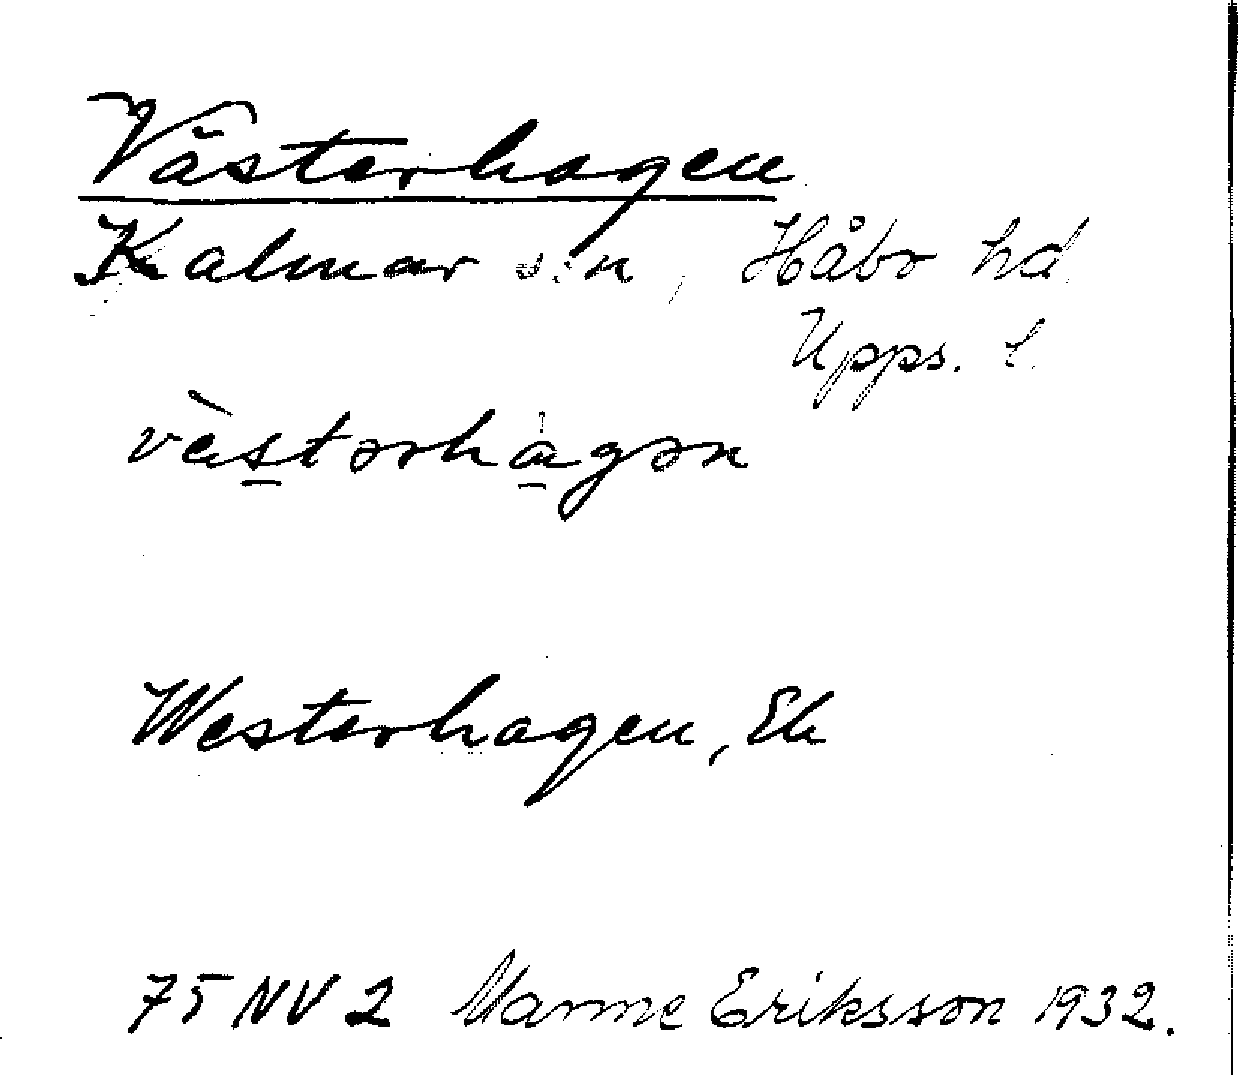 Västerhagen
Kalmar s:n, Håbo hd
Upps. l.
vèstərhàgən
Westerhagen, Ek
75 NV 2 Manne Eriksson 1932.